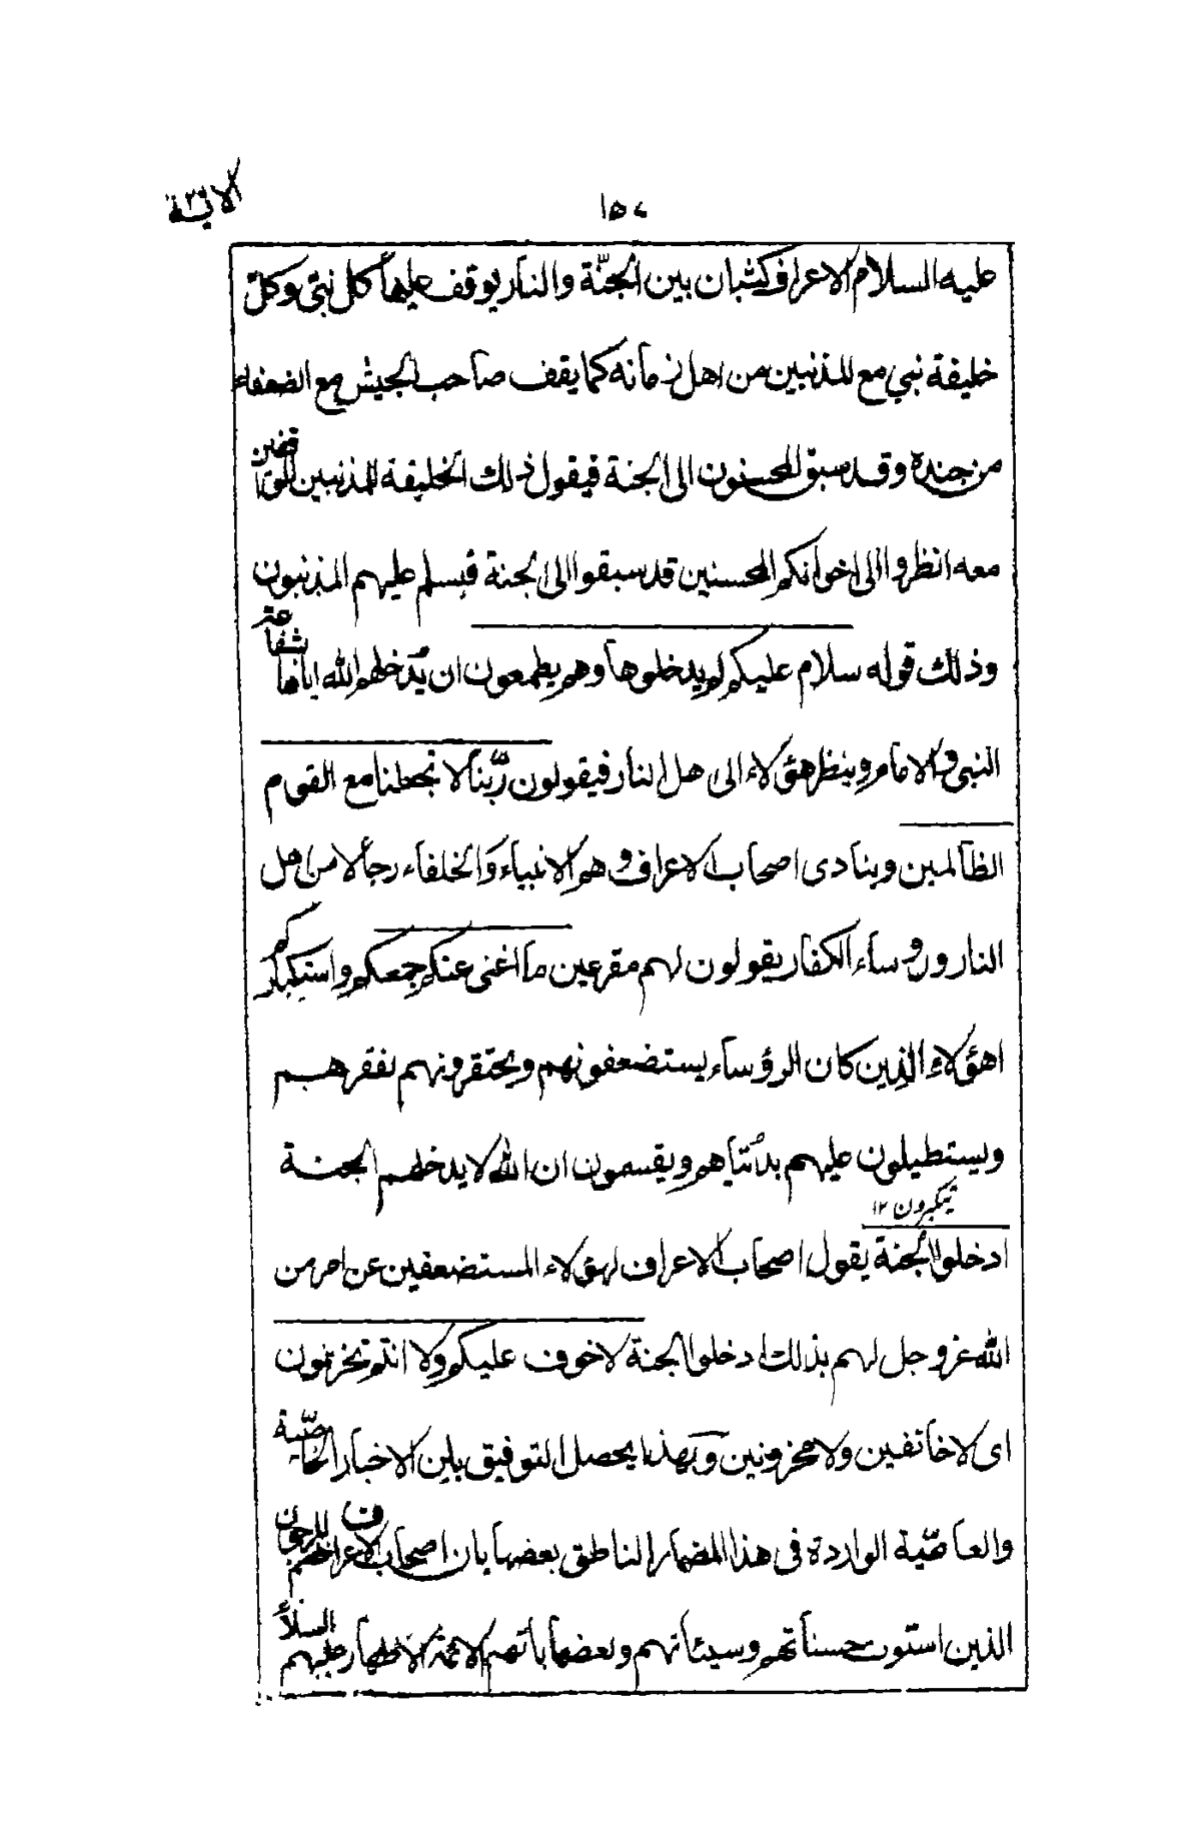 الآية
١٥٧
عليه السلام الاعراف كثبان بين الجنّة والنار يوقف عليها كل نبيّ وكلّ
خليفة نبي مع المذنبين من اهل زمانه كما يقف صاحب الجيش مع الضعفاء
من جنده وقد سبق المحسنون الى الجنة فيقول ذلك الخليفة للمذنبين الواقفين
معه انظروا الى اخوانكم المحسنين قد سبقوا الى الجنة فيسلم عليهم المذنبون
وذلك قوله سلام عليكم لم يدخلوها وهم يطمعون ان يدخلهم الله اياها بشفاعة
النبي والامام وينظر هؤلاء الى اهل النار فيقولون ربّنا لا تجعلنا مع القوم
الظالمين وينادى اصحاب الاعراف وهم الانبياء والخلفاء رجالا من اهل
النار ورؤساء الكفار يقولون لهم مقرعين ما اغنى عنكم جمعكم واستكباركم
اهؤلاء الذين كان الرؤساء يستضعفونهم ويحتقرونهم بفقرهم
ويستطيلون عليهم بدنياهم ويقسمون ان الله لا يدخلهم الجنة
تيكبرون ١٢
ادخلوا الجنة يقول اصحاب الاعراف لهؤلاء المستضعفين عن امر من
الله عزوجل لهم بذلك ادخلوا الجنة لا خوف عليكم ولا انتم تحزنون
اى لا خائفين ولا محزونين وبهذا يحصل التوفيق بين الاخبار الخاصّية
والعامّية الواردة فى هذا المضمار الناطق بعضها بان اصحاب الاعراف هم المرجون
الذين استوت حسناتهم وسيئاتهم وبعضها بانهم الائمة الاطهار عليهم السلام